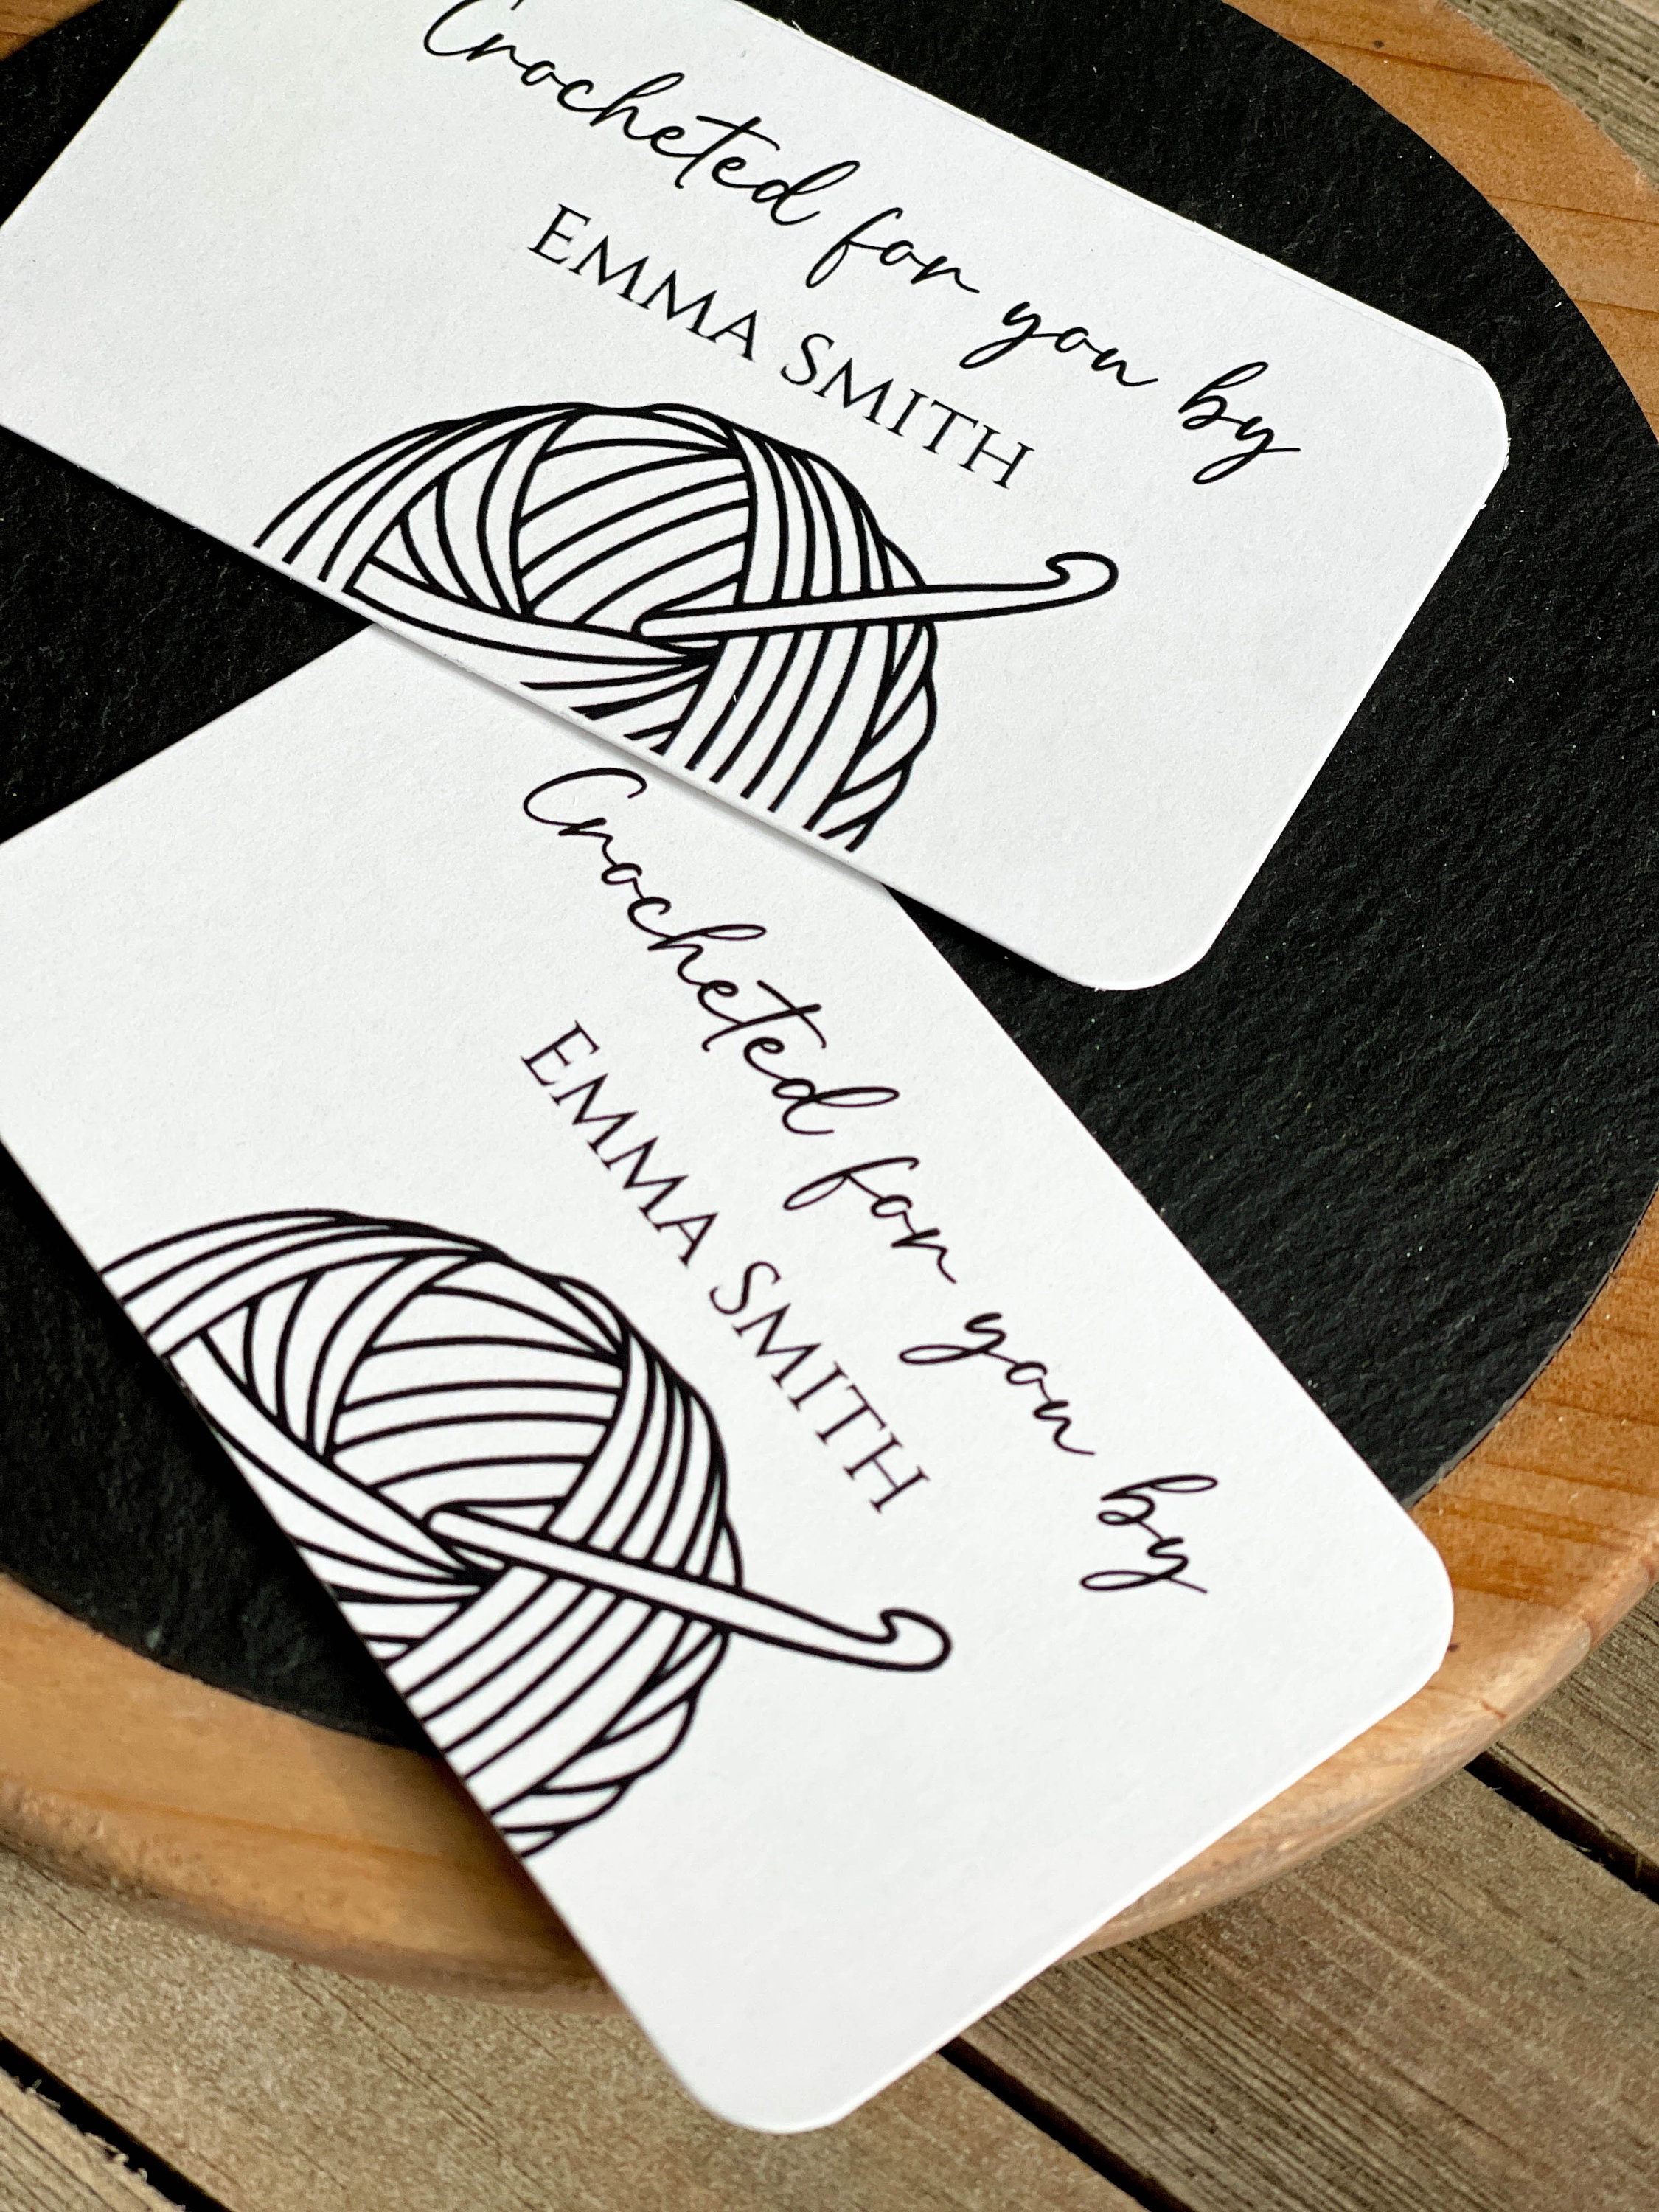 Crocheted for you by
EMMA SMITH
Crocheted for you by
EMMA SMITH